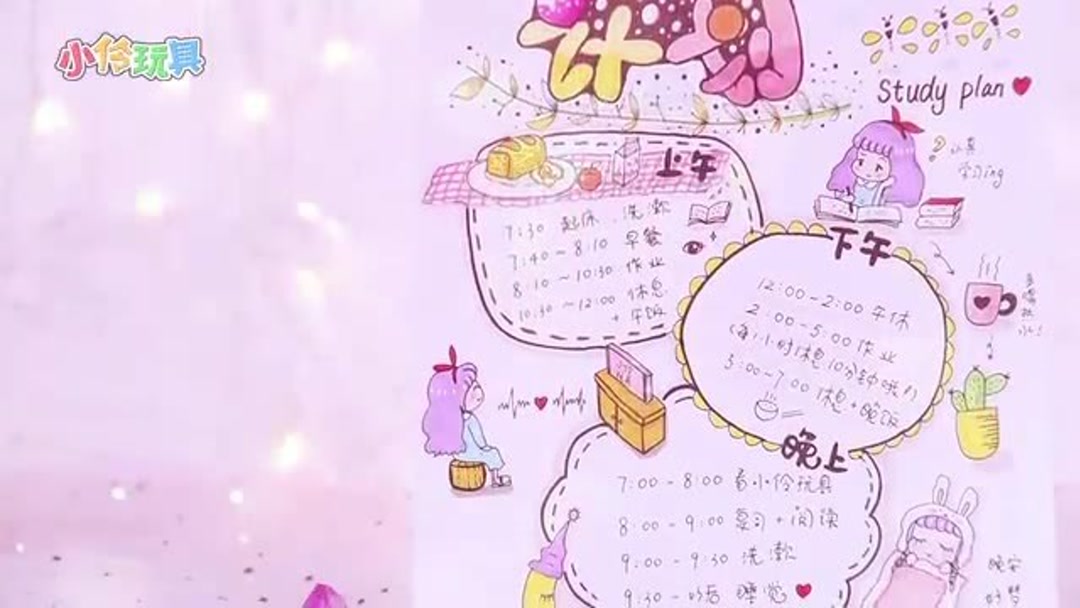 小伶玩具
计划
Study plan
认真
学习ing
上午
7:30 起床、洗漱
7:40~8:10 早餐
8:10~10:30 作业
10:30~12:00 休息
+ 午饭
下午
12:00-2:00 午休
2:00-5:00 作业
(每1小时休息10分钟哦!)
5:00-7:00 休息+晚饭
晚上
7:00-8:00 看小伶玩具
8:00-9:00 复习+阅读
9:00-9:30 洗漱
9:30-以后 睡觉
晚安
好梦